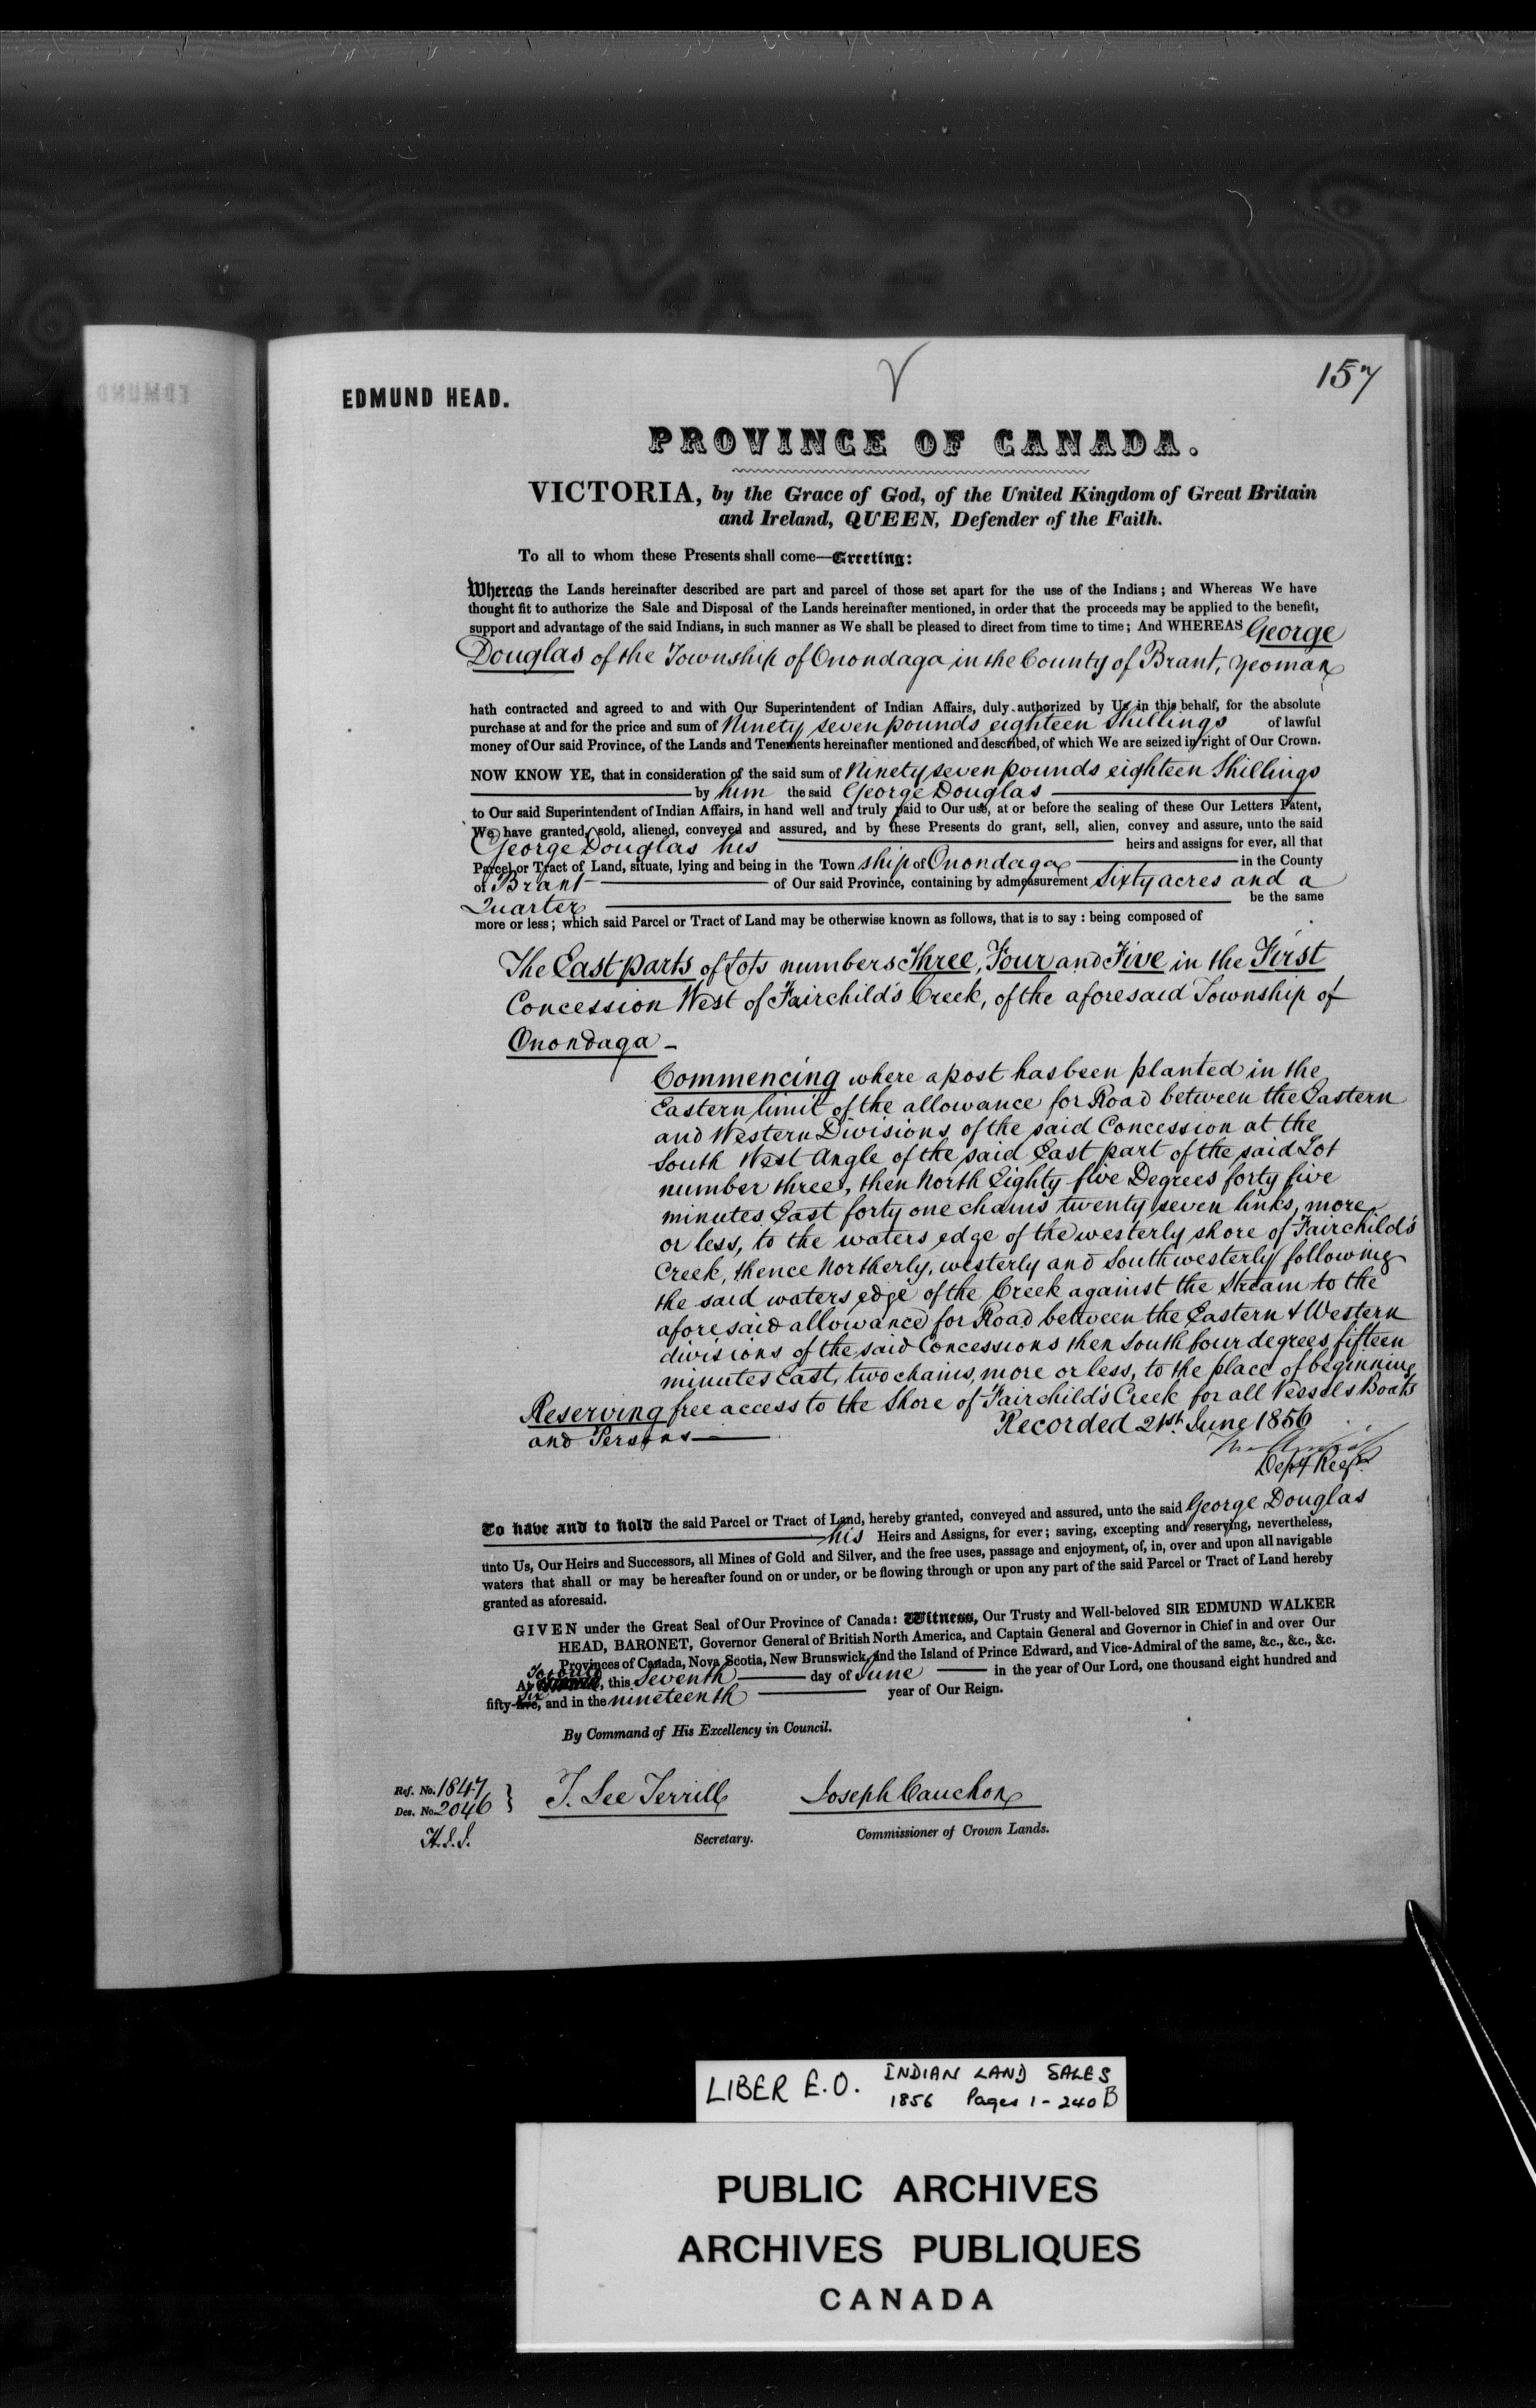 157
EDMUND HEAD.
PROVINCE OF CANADA.
VICTORIA, by the Grace of God, of the United Kingdom of Great Britain
and Ireland, QUEEN, Defender of the Faith.
To all to whom these Presents shall come—Greeting:
Whereas the Lands hereinafter described are part and parcel of those set apart for the use of the Indians; and Whereas We have
thought fit to authorize the Sale and Disposal of the Lands hereinafter mentioned, in order that the proceeds may be applied to the benefit,
support and advantage of the said Indians, in such manner as We shall be pleased to direct from time to time; And WHEREAS George
Douglas of the Township of Onondaga in the County of Brant, yeoman
hath contracted and agreed to and with Our Superintendent of Indian Affairs, duly authorized by Us in this behalf, for the absolute
purchase at and for the price and sum of Ninety seven pounds eighteen Shillings of lawful
money of Our said Province, of the Lands and Tenements hereinafter mentioned and described, of which We are seized in right of Our Crown.
NOW KNOW YE, that in consideration of the said sum of Ninety seven pounds eighteen Shillings
by him the said George Douglas
to Our said Superintendent of Indian Affairs, in hand well and truly paid to Our use, at or before the sealing of these Our Letters Patent,
We have granted, sold, aliened, conveyed and assured, and by these Presents do grant, sell, alien, convey and assure, unto the said
George Douglas his heirs and assigns for ever, all that
Parcel or Tract of Land, situate, lying and being in the Town ship of Onondaga in the County
of Brant of Our said Province, containing by admeasurement Sixty acres and a
Quarter be the same
more or less; which said Parcel or Tract of Land may be otherwise known as follows, that is to say: being composed of
The East parts of Lots numbers Three, Four and Five in the First
Concession West of Fairchild's Creek, of the aforesaid Township of
Onondaga -
Commencing where a post has been planted in the
Eastern limit of the allowance for Road between the Eastern
and Western Divisions of the said Concession at the
South West Angle of the said East part of the said Lot
number three, then North Eighty five Degrees forty five
minutes East forty one chains twenty seven links, more
or less, to the waters edge of the westerly shore of Fairchild's
Creek, thence Northerly, westerly and Southwesterly following
the said waters edge of the Creek against the Stream to the
aforesaid allowance for Road between the Eastern & Western
divisions of the said Concessions then South four degrees fifteen
minutes East, two chains, more or less, to the place of beginning
Reserving free access to the Shore of Fairchild's Creek for all Vessels Boats
and Persons
Recorded 21st June 1856
Depy Regr
To have and to hold the said Parcel or Tract of Land, hereby granted, conveyed and assured, unto the said George Douglas
his Heirs and Assigns, for ever; saving, excepting and reserving, nevertheless,
unto Us, Our Heirs and Successors, all Mines of Gold and Silver, and the free uses, passage and enjoyment, of, in, over and upon all navigable
waters that shall or may be hereafter found on or under, or be flowing through or upon any part of the said Parcel or Tract of Land hereby
granted as aforesaid.
GIVEN under the Great Seal of Our Province of Canada: Witness, Our Trusty and Well-beloved SIR EDMUND WALKER
HEAD, BARONET, Governor General of British North America, and Captain General and Governor in Chief in and over Our
Provinces of Canada, Nova Scotia, New Brunswick, and the Island of Prince Edward, and Vice-Admiral of the same, &c., &c., &c.
At Toronto, this Seventh day of June in the year of Our Lord, one thousand eight hundred and
fifty-five, Six and in the nineteenth year of Our Reign.
By Command of His Excellency in Council.
Ref. No. 1847
Des. No. 2046
T. Lee Terrill
Joseph Cauchon
Secretary.
Commissioner of Crown Lands.
LIBER E.O. INDIAN LAND SALES
1856 Pages 1-240B
PUBLIC ARCHIVES
ARCHIVES PUBLIQUES
CANADA